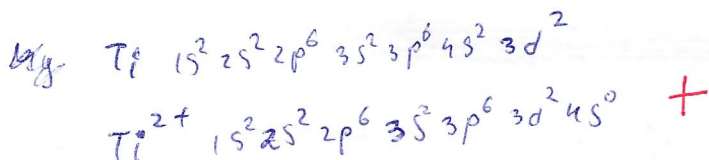 Ti 1s² 2s² 2p⁶ 3s² 3p⁶ 4s² 3d²
Ti²⁺ 1s² 2s² 2p⁶ 3s² 3p⁶ 3d² 4s⁰ +